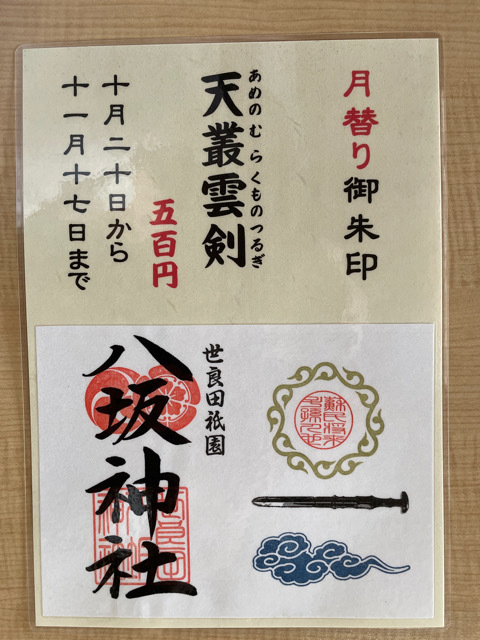 月替り御朱印
あめのむらくものつるぎ
天叢雲剣
五百円
十月二十日から
十一月十七日まで
蘇民将来
子孫人也
世良田祇園
八坂神社